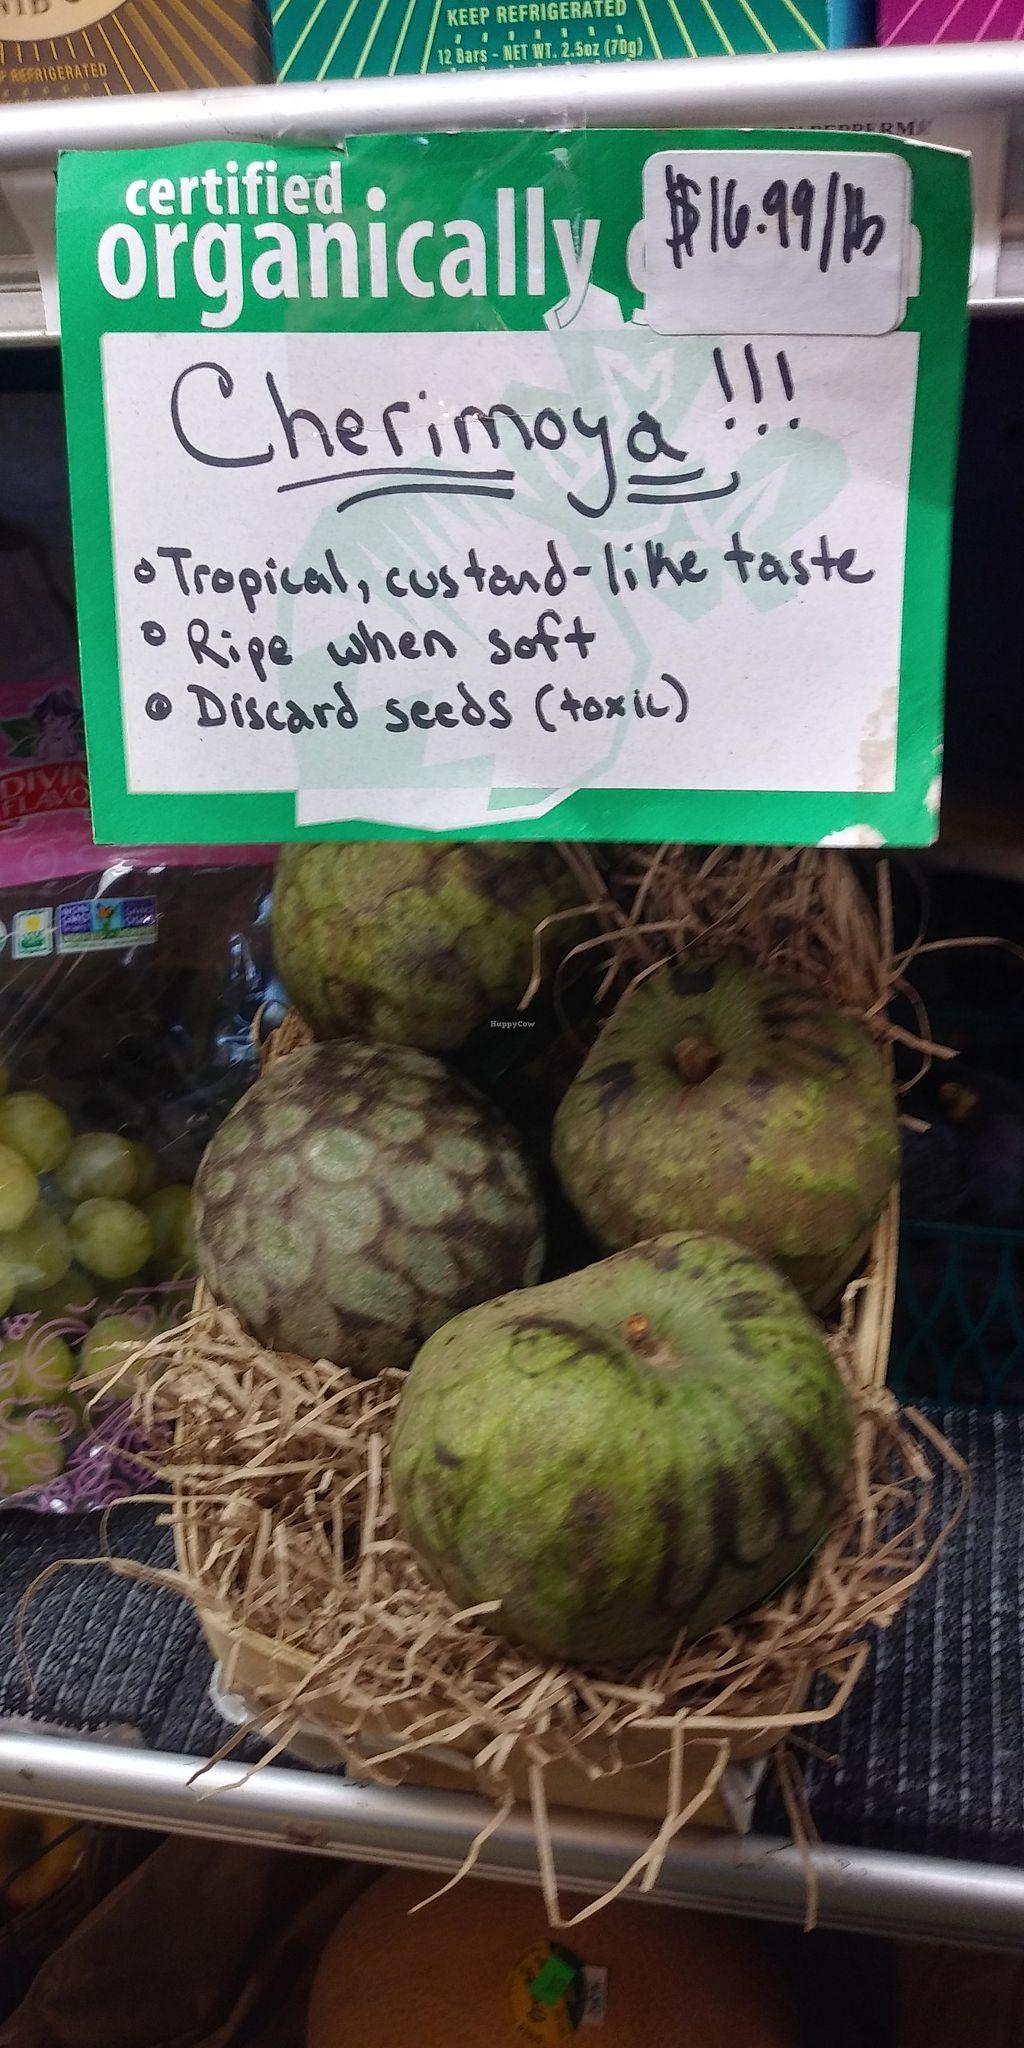 KEEP REFRIGERATED
12 Bars - NET WT. 2.5oz (70g)
REFRIGERATED
certified
organically
$16.99/lb
Cherimoya!!!
Tropical, custard-like taste
Ripe when soft
Discard seeds (toxic)
HappyCow